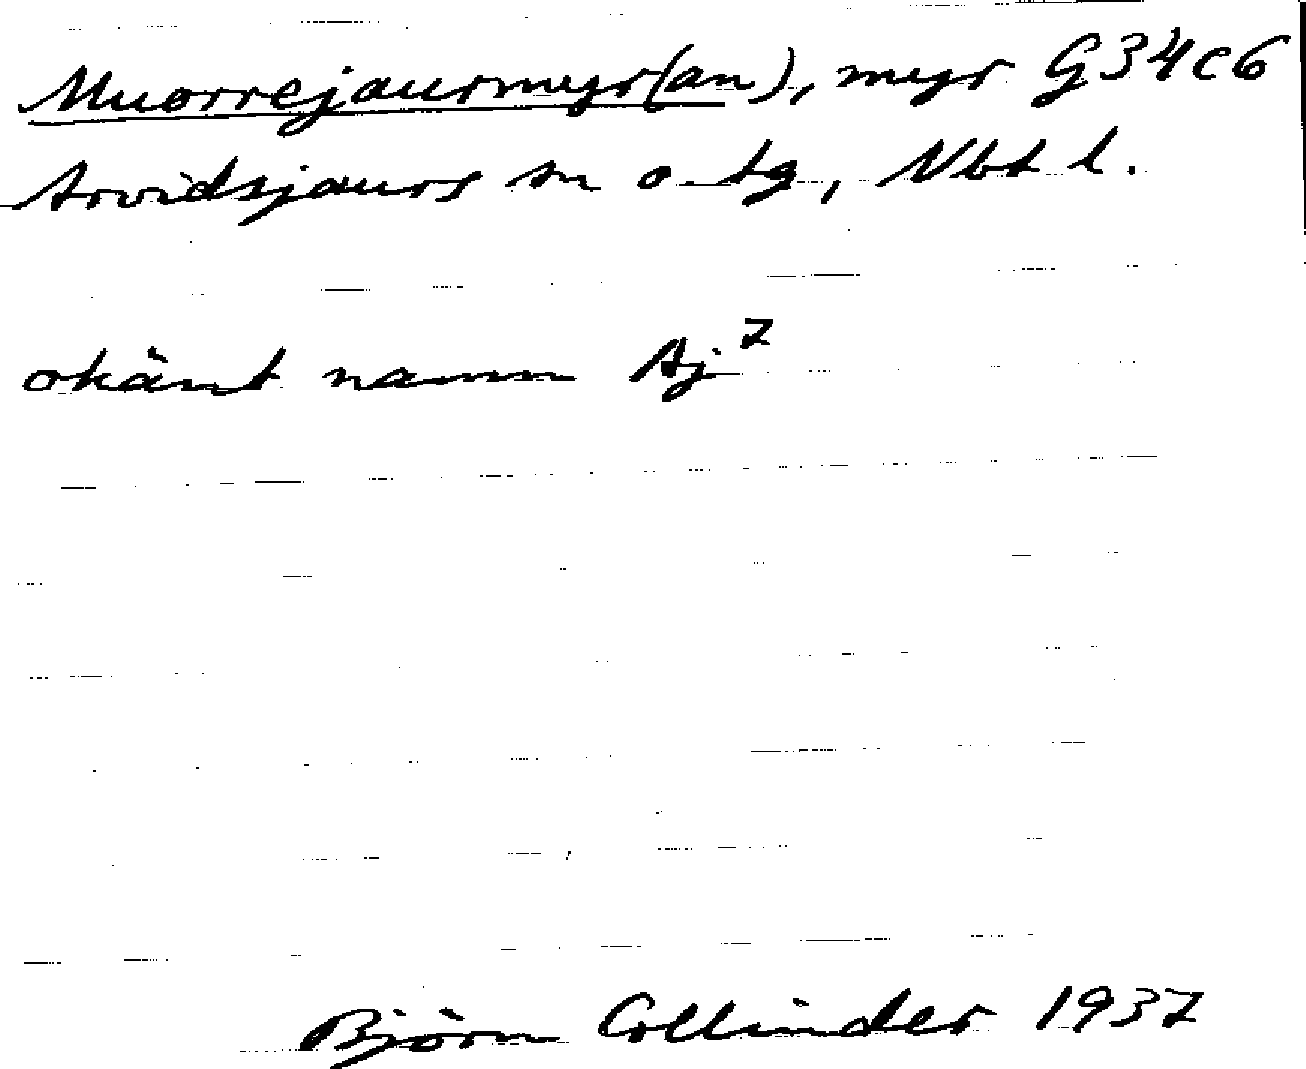 Muorrejaurmyr(an), myr G34c6
Arvidsjaurs sn o. tg, Nbt l.
okänt namn Aj⁷
Björn Collinder 1937